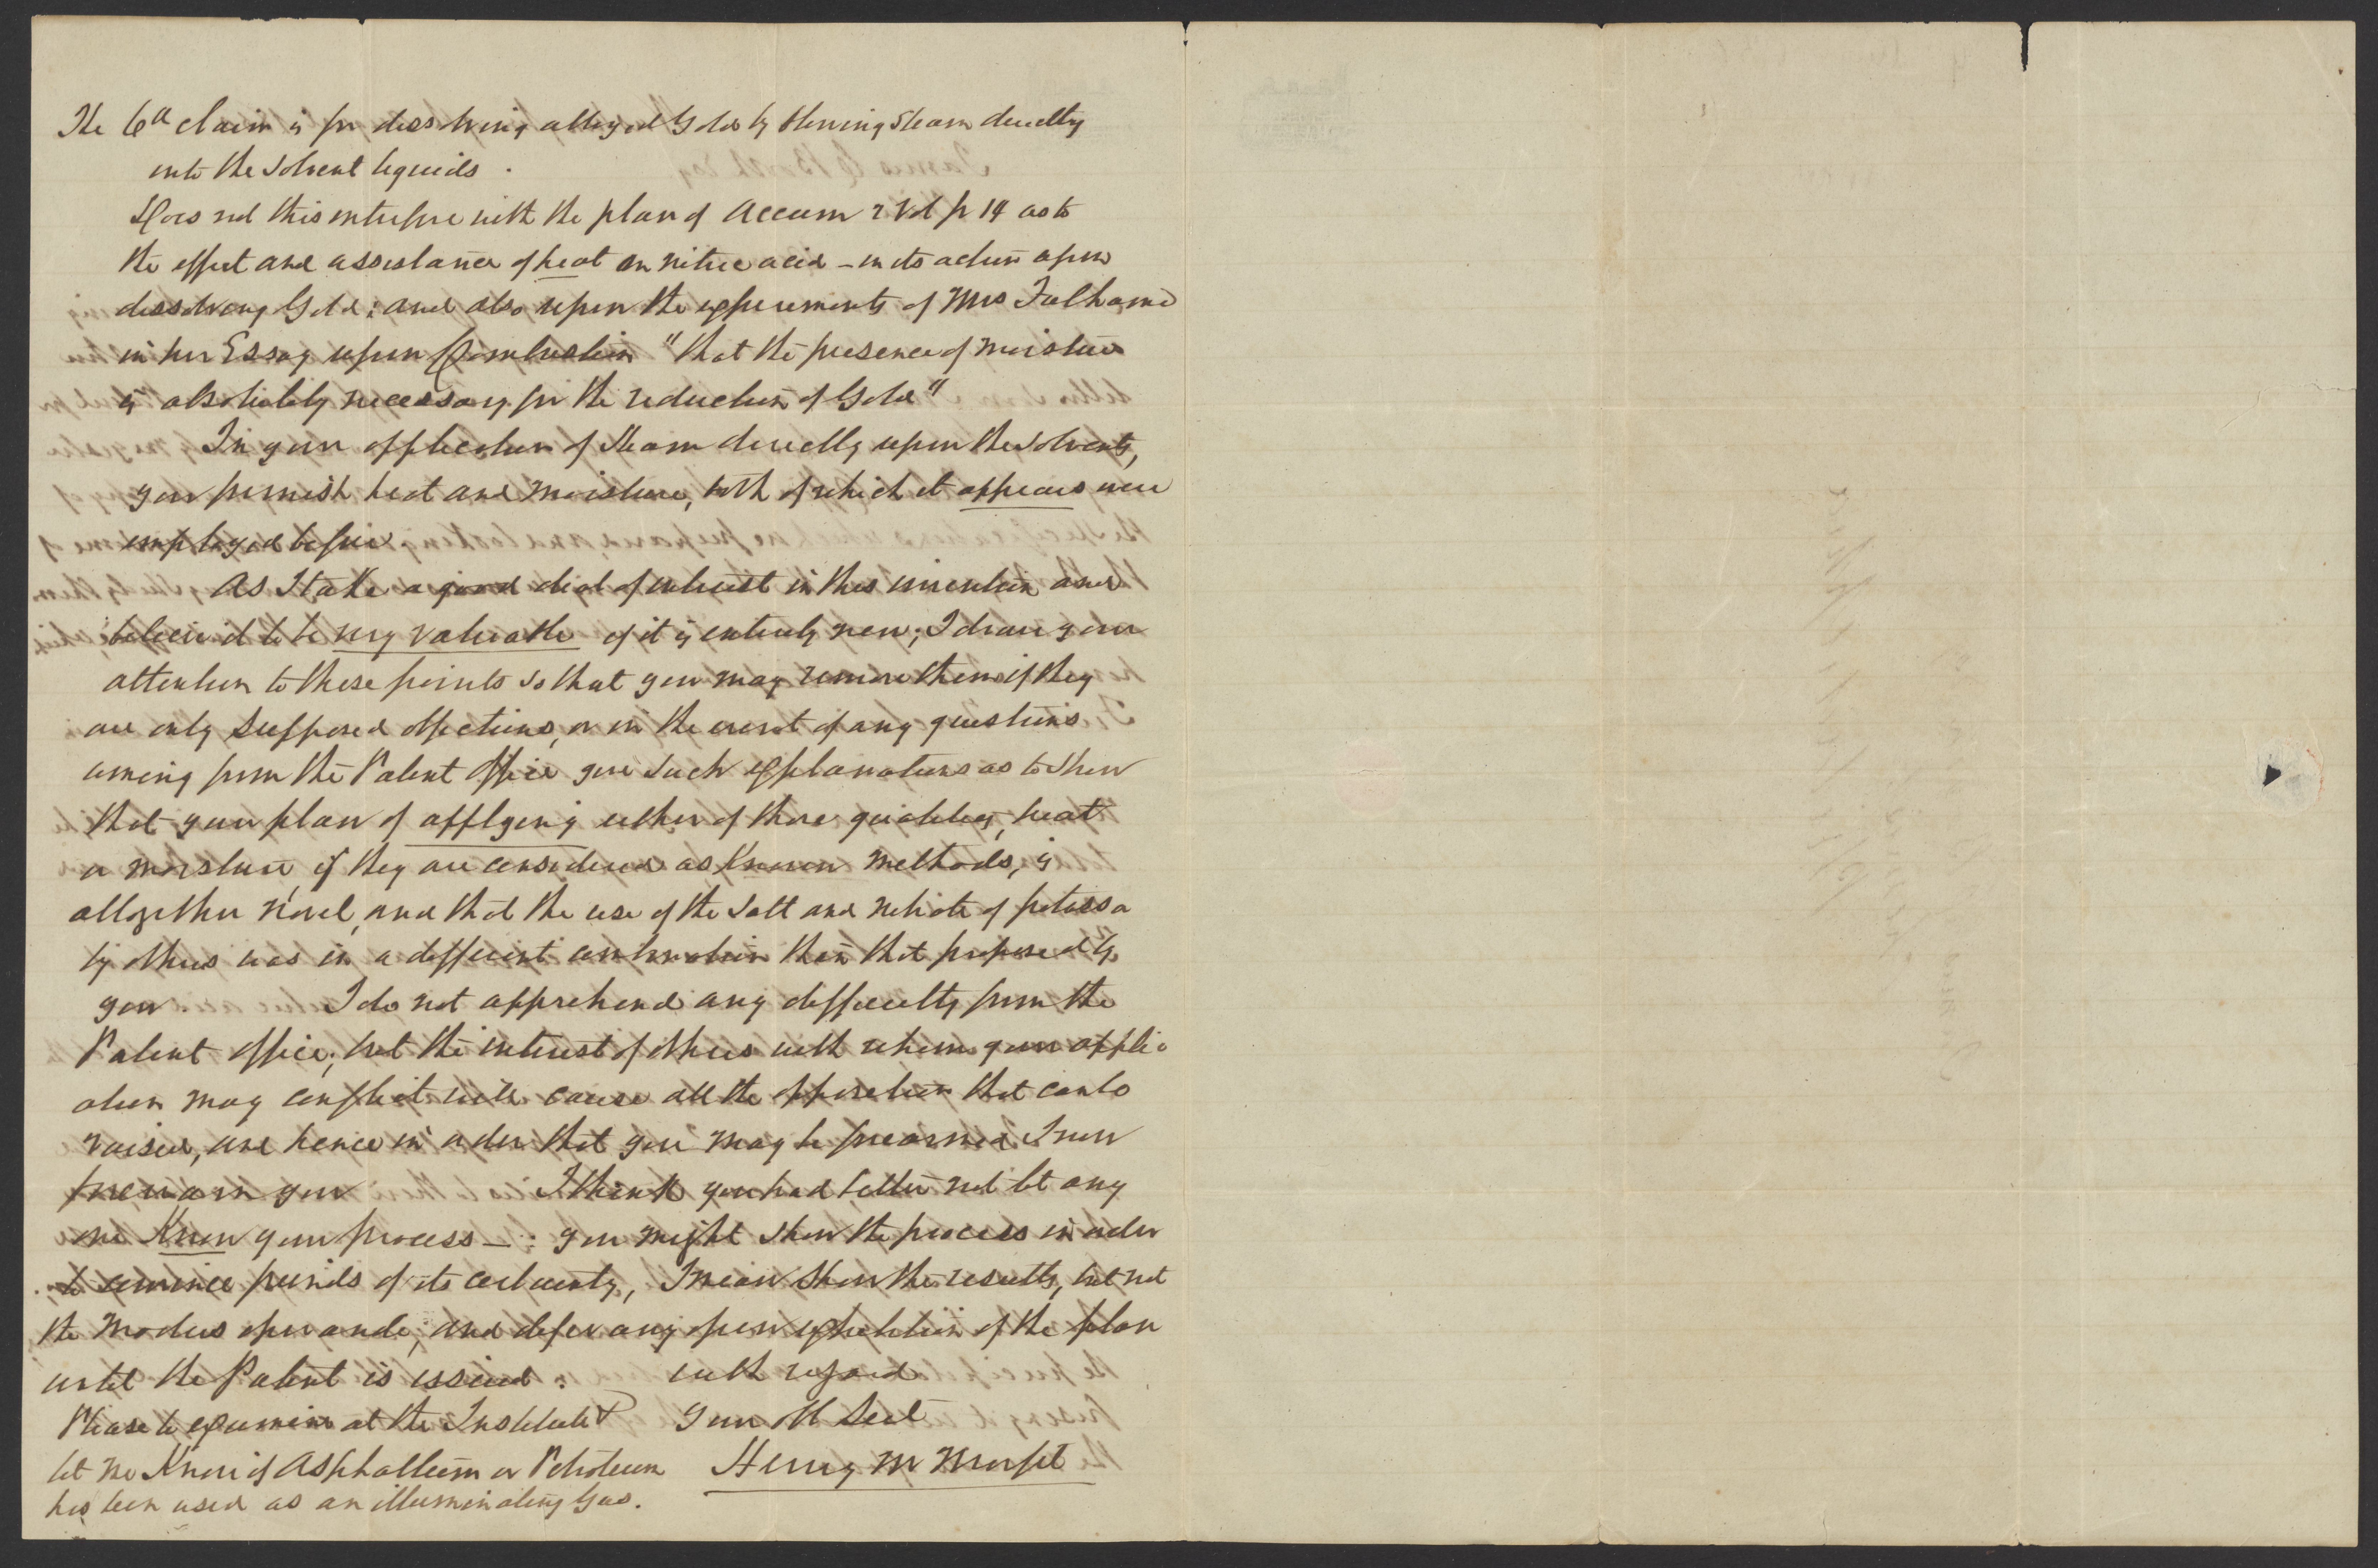 The 6th claim is for dissolving alloyed Gold by blowing steam directly
into the solvent liquids.
Does not this interfere with the plan of Accum 2 Vol p 14 as to
the effect and assistance of heat on nitric acid – in its action upon
dissolving Gold; and also upon the experiments of Mrs Fulhame
in her Essay upon Combustion "that the presence of moisture
is absolutely necessary for the reduction of Gold"
In your application of steam directly upon the solvents,
you furnish heat and moisture, both of which it appears were
employed before.
As I take a good deal of interest in this invention and
believe it to be very valuable if it is entirely new; I draw your
attention to these points so that you may remove them if they
are only supposed objections, or in the event of any questions
arising from the Patent Office give such explanations as to show
that your plan of applying either of those qualities, heat
or moisture, if they are considered as known methods, is
altogether novel, and that the use of the salt and nitrate of potassa
by others was in a different combination than that proposed by
you I do not apprehend any difficulty from the
Patent office; but the interest of others with whom your applic
ation may conflict will cause all the opposition that can be
raised, and hence in order that you may be forearmed I now
forewarn you I think you had better not let any
one know your process – : you might show the process in order
to convince friends of its certainty, I mean show the results, but not
the modus operandi; and defer any open exhibition of the plan
until the Patent is issued. with regard
Please to examine at the Institute & Your Ob Sevt
let me know if Asphalteum or Petroleum Henry M Morfit
has been used as an illuminating Gas.